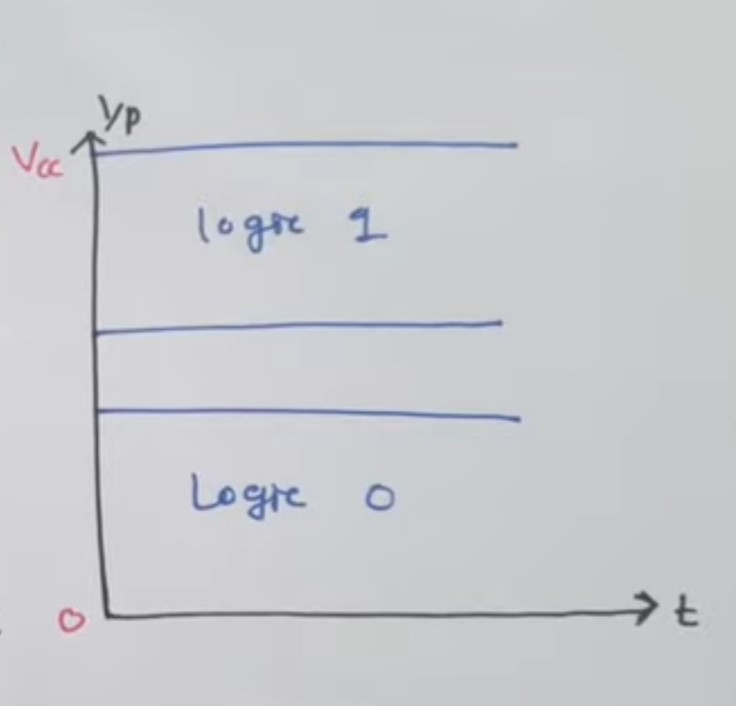 I/p
Vcc
logic 1
Logic 0
0
t